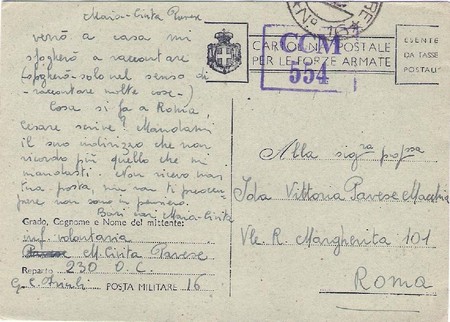 Maria-Civita Pavese
verrò a casa mi
sfogherò a raccontare
(sfogherò solo nel senso di
raccontare molte cose-)
Cosa si fa a Roma,
Cesare scrive? Mandami
il suo indirizzo che non
ricordo più quello che mi
mandasti. Non ricevo mai
tua posta, ma non ti preoccu-
pare non sono in pensiero.
Baci cari Maria-Civita
Grado, Cognome e Nome del mittente:
inf. volontaria
M. Civita Pavese
Reparto 230 O.C.
POSTA MILITARE 16
CARTOLINA POSTALE
PER LE FORZE ARMATE
CCM
534
ESENTE
DA TASSE
POSTALI
Alla sigra profssa
Ida Vittoria Pavese Macchia
Vle. R. Margherita 101
Roma